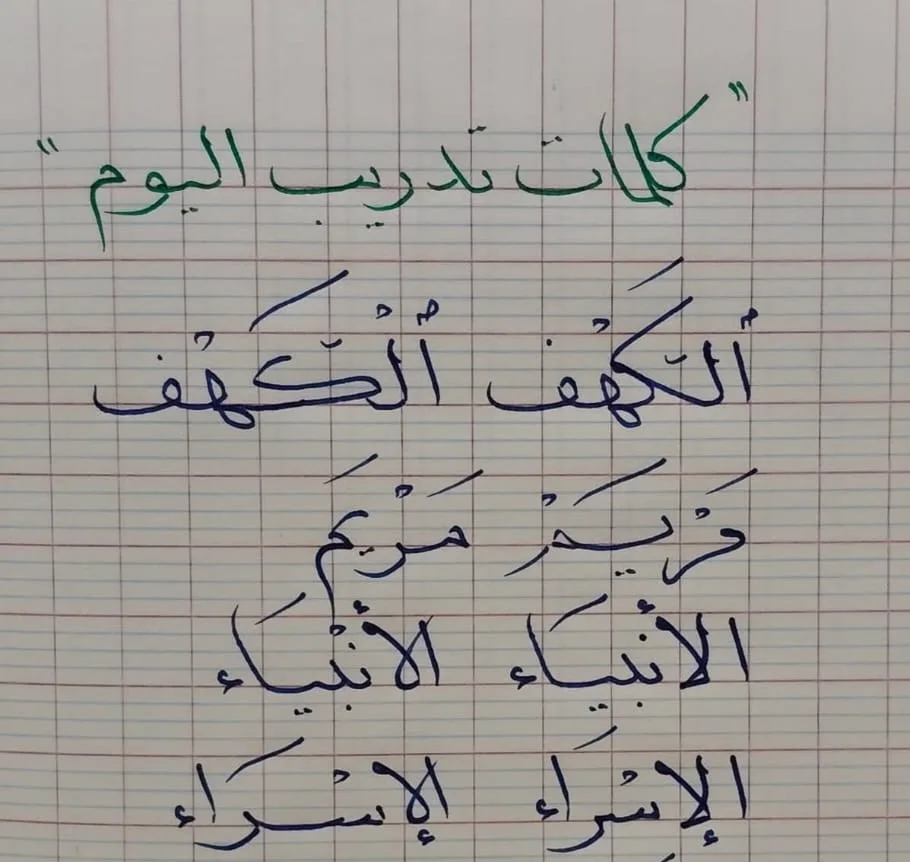 "كلمات تدريب اليوم"
ٱلْكَهْف ٱلْكَهْف
مَرْيَمْ مَرْيَم
الأنبيَاء الأنْبيَاء
الإسْرَاء الإسْرَاء